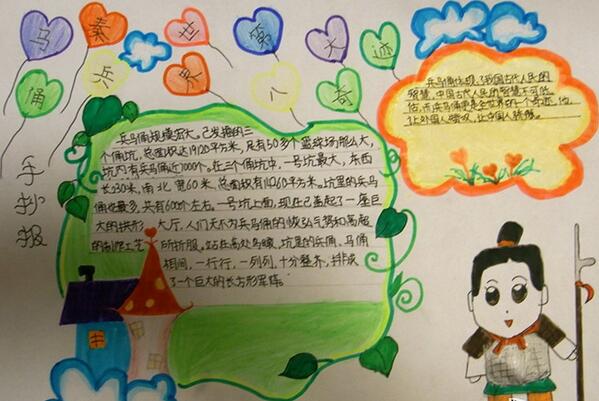 马 秦 世 第 大 迹
俑 兵 界 八 奇
手抄报
兵马俑规模宏大。已发掘的三
个俑坑，总面积近19120平方米，足有50多个篮球场那么大，
坑内有兵马俑近1000个。在三个俑坑中，一号坑最大，东西
长230米，南北宽60米，总面积有14260平方米。坑里的兵马
俑也最多，共有6000个左右。一号坑上面，现在已盖起了一座巨
大的拱形大厅，人们无不为兵马俑的恢弘气势和高超
的制作工艺所折服。站在高处鸟瞰，坑里的兵俑、马俑
相间，一行行，一列列，十分整齐，排成
了一个巨大的长方形军阵。
兵马俑体现了我国古代人民的
智慧，中国古代人民的智慧不可低
估，而兵马俑更是全世界的一个奇迹，他
让外国人赞叹，让中国人骄傲。